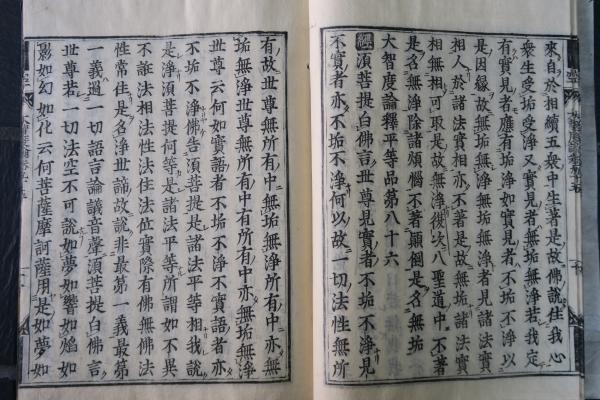 來自於相續五衆中生著是故佛說住我心
衆生受垢受淨又實見者無垢無淨若我定
有實見者應有垢淨如實見者不垢不淨以
是因緣故無垢無淨無垢無淨者見諸法實
相人於諸法實相亦不著是故無垢諸法實
相無相可取是故無淨復次八聖道中不著
是名無淨除諸煩惱不著顛倒是名無垢
大智度論釋平等品第八十六
經須菩提白佛言世尊見實者不垢不淨見
不實者亦不垢不淨何以故一切法性無所
有故世尊無所有中亦無垢無淨所有中亦無
垢無淨世尊無所有中所有中亦無垢無淨
世尊云何如實語者不垢不淨不實語者亦
不垢不淨佛告須菩提是諸法平等相我說
是淨須菩提何等是諸法平等所謂如不異
不誑法相法性法住法位實際有佛無佛法
性常住是名淨世諦故說非最第一義最第
一義過一切語言論議音聲須菩提白佛言
世尊若一切法空不可說如夢如響如焰如
影如幻如化云何菩薩摩訶薩用是如夢如